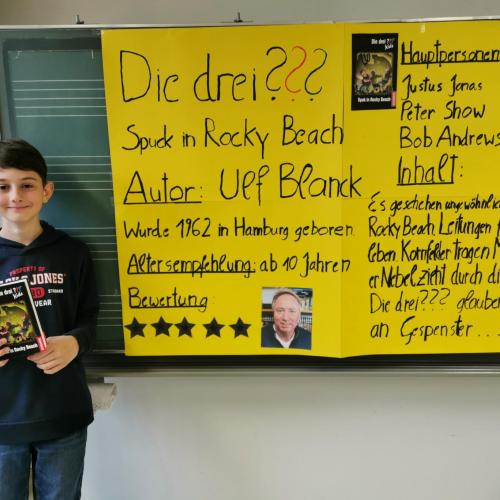 Die drei???
Spuck in Rocky Beach
Autor: Ulf Blanck
Wurde 1962 in Hamburg geboren
Altersempfehlung: ab 10 Jahren
Bewertung
Die drei ??? kids
Spuk in Rocky Beach
Hauptpersonen
Justus Jonas
Peter Show
Bob Andrews
Inhalt:
Es geschehen ungewöhnlich
Rocky Beach. Leitungen
leben Kornfelder tragen
er Nebel zieht durch di
Die drei??? glaube
an Gespenster...
PROPERTY OF
JONES
WEAR
Die drei ??? kids
Spuk in Rocky Beach